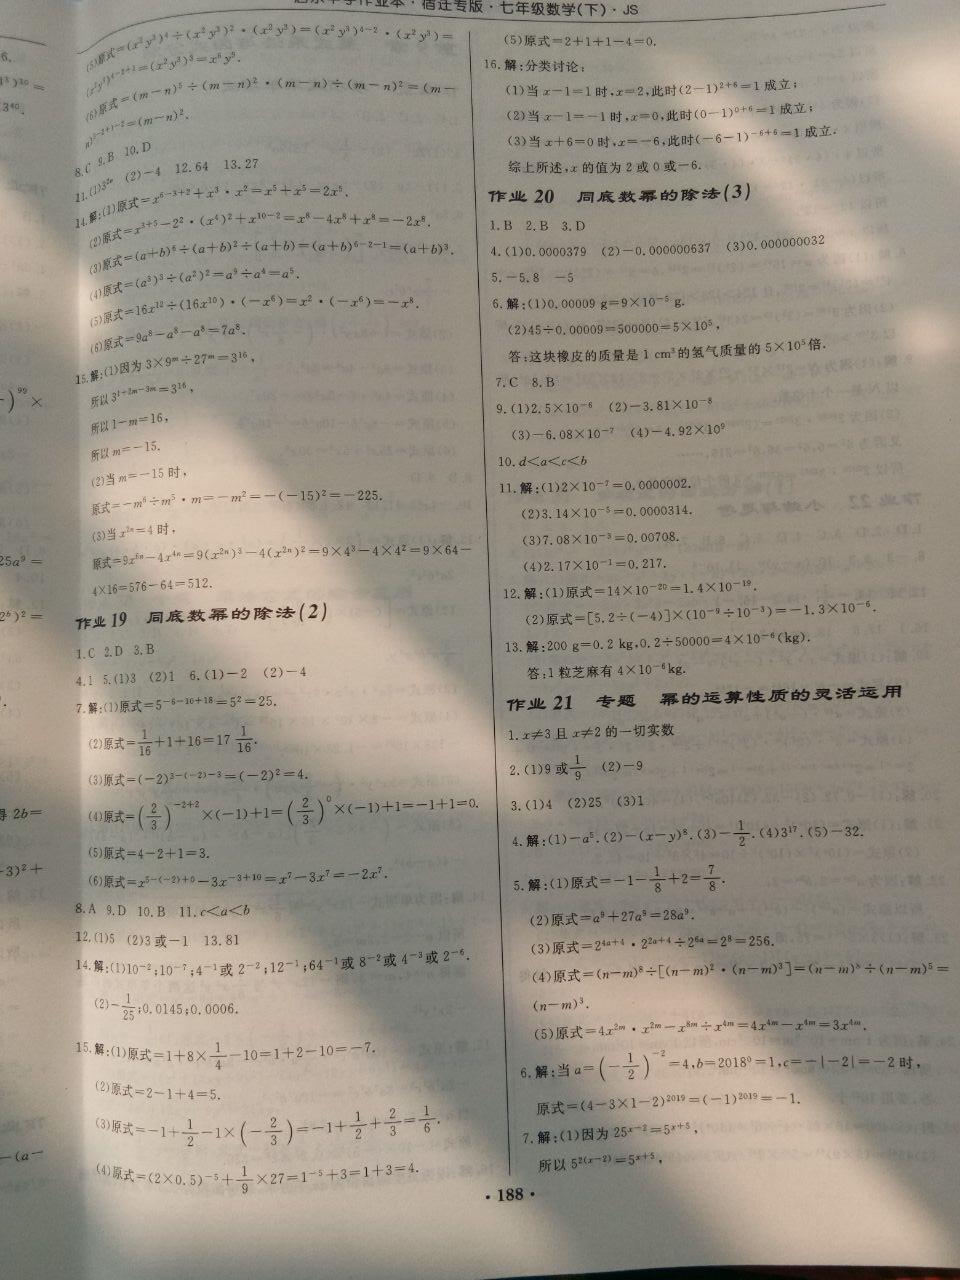 中学作业本·宿迁专版·七年级数学(下)·JS
(5)原式=(x²y³)⁴÷(x²y³)²·(x²y³)=(x²y³)⁴⁻²·(x²y³)=
(x²y³)⁴⁻²⁺¹=(x²y³)³=x⁶y⁹.
(6)原式=(m−n)⁵÷(m−n)²·(m−n)÷(m−n)²=(m−
n)⁵⁻²⁺¹⁻²=(m−n)².
8.C 9.B 10.D
11.(1)3²ⁿ (2)−4 12.64 13.27
14.解:(1)原式=x⁶⁻³⁺²+x³·x²=x⁵+x⁵=2x⁵.
(2)原式=x³⁺⁵−2²·(x⁴)²+x¹⁰⁻²=x⁸−4x⁸+x⁸=−2x⁸.
(3)原式=(a+b)⁶÷(a+b)²÷(a+b)=(a+b)⁶⁻²⁻¹=(a+b)³.
(4)原式=(a³)³÷(a²)²=a⁹÷a⁴=a⁵.
(5)原式=16x¹²÷(16x¹⁰)·(−x⁶)=x²·(−x⁶)=−x⁸.
(6)原式=9a⁸−a⁸−a⁸=7a⁸.
15.解:(1)因为3×9ᵐ÷27ᵐ=3¹⁶,
所以3¹⁺²ᵐ⁻³ᵐ=3¹⁶,
所以1−m=16,
所以m=−15.
(2)当m=−15时,
原式=−m⁶÷m⁵·m=−m²=−(−15)²=−225.
(3)当x²ⁿ=4时,
原式=9x⁶ⁿ−4x⁴ⁿ=9(x²ⁿ)³−4(x²ⁿ)²=9×4³−4×4²=9×64−
4×16=576−64=512.
作业19 同底数幂的除法(2)
1.C 2.D 3.B
4.1 5.(1)3 (2)1 6.(1)−2 (2)−4
7.解:(1)原式=5⁻⁶⁻¹⁰⁺¹⁸=5²=25.
(2)原式=1/16+1+16=17 1/16.
(3)原式=(−2)³⁻⁽⁻²⁾⁻³=(−2)²=4.
(4)原式=(2/3)⁻²⁺²×(−1)+1=(2/3)⁰×(−1)+1=−1+1=0.
(5)原式=4−2+1=3.
(6)原式=x⁵⁻⁽⁻²⁾⁺⁰−3x⁻³⁺¹⁰=x⁷−3x⁷=−2x⁷.
8.A 9.D 10.B 11.c<a<b
12.(1)5 (2)3或−1 13.81
14.解:(1)10⁻²;10⁻⁷;4⁻¹或2⁻²;12⁻¹;64⁻¹或8⁻²或4⁻³或2⁻⁶.
(2)−1/25;0.0145;0.0006.
15.解:(1)原式=1+8×1/4−10=1+2−10=−7.
(2)原式=2−1+4=5.
(3)原式=−1+1/2−1×(−2/3)=−1+1/2+2/3=1/6.
(4)原式=(2×0.5)⁻⁵+1/9×27=1⁻⁵+3=1+3=4.
(5)原式=2+1+1−4=0.
16.解:分类讨论:
(1)当x−1=1时,x=2,此时(2−1)²⁺⁶=1成立;
(2)当x−1=−1时,x=0,此时(0−1)⁰⁺⁶=1成立;
(3)当x+6=0时,x=−6,此时(−6−1)⁻⁶⁺⁶=1成立.
综上所述,x的值为2或0或−6.
作业20 同底数幂的除法(3)
1.B 2.B 3.D
4.(1)0.0000379 (2)−0.000000637 (3)0.000000032
5.−5.8 −5
6.解:(1)0.00009 g=9×10⁻⁵ g.
(2)45÷0.00009=500000=5×10⁵,
答:这块橡皮的质量是1 cm³的氢气质量的5×10⁵倍.
7.C 8.B
9.(1)2.5×10⁻⁶ (2)−3.81×10⁻⁸
(3)−6.08×10⁻⁷ (4)−4.92×10⁹
10.d<a<c<b
11.解:(1)2×10⁻⁷=0.0000002.
(2)3.14×10⁻⁵=0.0000314.
(3)7.08×10⁻³=0.00708.
(4)2.17×10⁻¹=0.217.
12.解:(1)原式=14×10⁻²⁰=1.4×10⁻¹⁹.
(2)原式=[5.2÷(−4)]×(10⁻⁹÷10⁻³)=−1.3×10⁻⁶.
13.解:200 g=0.2 kg,0.2÷50000=4×10⁻⁶(kg).
答:1粒芝麻有4×10⁻⁶kg.
作业21 专题 幂的运算性质的灵活运用
1.x≠3且x≠2的一切实数
2.(1)9或1/9 (2)−9
3.(1)4 (2)25 (3)1
4.解:(1)−a⁵.(2)−(x−y)⁸.(3)−1/2.(4)3¹⁷.(5)−32.
5.解:(1)原式=−1−1/8+2=7/8.
(2)原式=a⁹+27a⁹=28a⁹.
(3)原式=2⁴ᵃ⁺⁴·2²ᵃ⁺⁴÷2⁶ᵃ=2⁸=256.
(4)原式=(n−m)⁸÷[(n−m)²·(n−m)³]=(n−m)⁸÷(n−m)⁵=
(n−m)³.
(5)原式=4x²ᵐ·x²ᵐ−x⁸ᵐ÷x⁴ᵐ=4x⁴ᵐ−x⁴ᵐ=3x⁴ᵐ.
6.解:当a=(−1/2)⁻²=4,b=2018⁰=1,c=−|−2|=−2时,
原式=(4−3×1−2)²⁰¹⁹=(−1)²⁰¹⁹=−1.
7.解:(1)因为25ˣ⁻²=5ˣ⁺⁵,
所以5²⁽ˣ⁻²⁾=5ˣ⁺⁵,
·188·